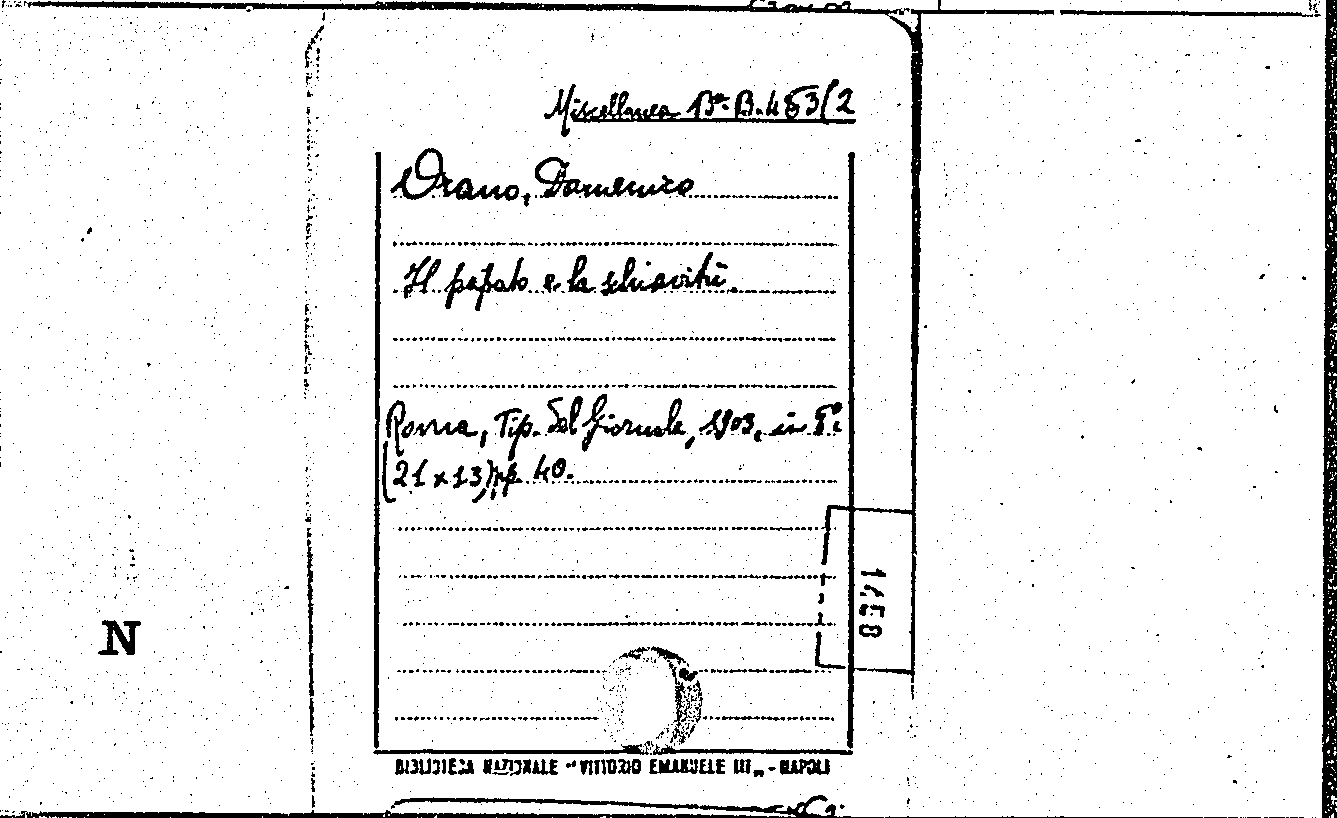 Miscellanea Ba. B. 453/2
Orano, Domenico
Il papato e la schiavitù.
Roma, Tip. del Giornale, 1903, in 8º.
(21 x 13), pp. 40.
1458
N
BIBLIOTECA NAZIONALE "VITTORIO EMANUELE III" - NAPOLI